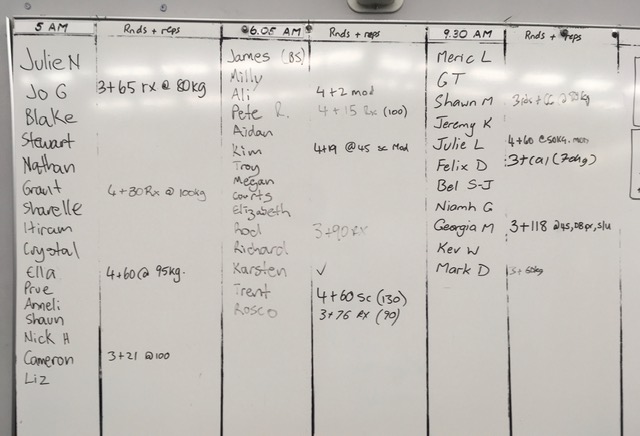 5 AM Rnds + reps
Julie N
Jo G 3+65 rx @ 80kg
Blake
Stewart
Nathan
Grant 4+30 Rx @ 100kg
Sharelle
Hiram
Crystal
Ella 4+60 @ 95kg.
Prue
Anneli
Shaun
Nick H
Cameron 3+21 @100
Liz
6.05 AM Rnds + reps
James (85)
Milly
Ali 4+2 mod
Pete R. 4+15 Rx (100)
Aidan
Kim 4+19 @45 sc Mod
Troy
Meegan
Courts
Elizabeth
Rod 3+90 RX
Richard
Karsten ✓
Trent 4+60 sc (130)
Rosco 3+76 Rx (90)
9.30 AM Rnds + reps
Meric L
GT
Shawn M
Jeremy K
Julie L 4+60 @50KG.
Felix D (70kg)
Bel S-J
Niamh G
Georgia M 3+118 @45, DB px, s/u
Kev W
Mark D